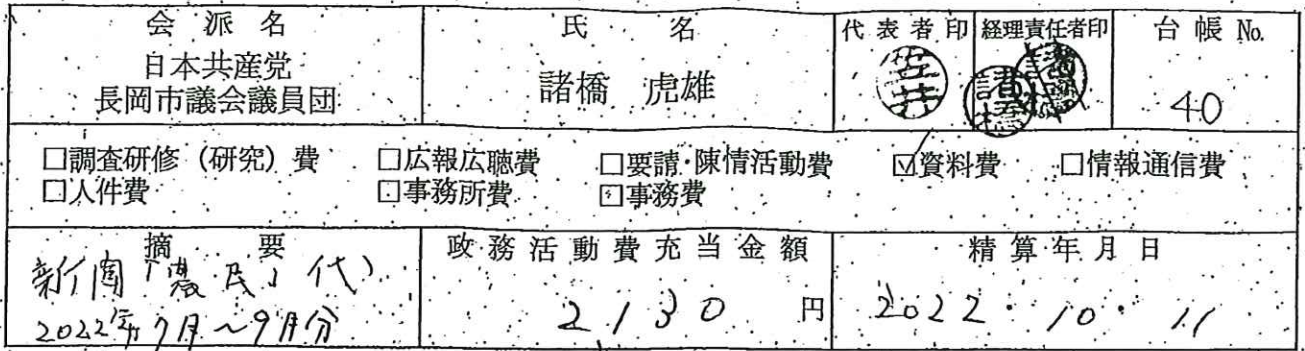 会派名 氏名 代表者印 経理責任者印 台帳No.
日本共産党
長岡市議会議員団 諸橋 虎雄 40
□調査研修(研究)費 □広報広聴費 □要請・陳情活動費 ☑資料費 □情報通信費
□人件費 □事務所費 □事務費
摘要 政務活動費充当金額 精算年月日
新聞「農民」代
2022年7月~9月分 2130円 2022・10・11